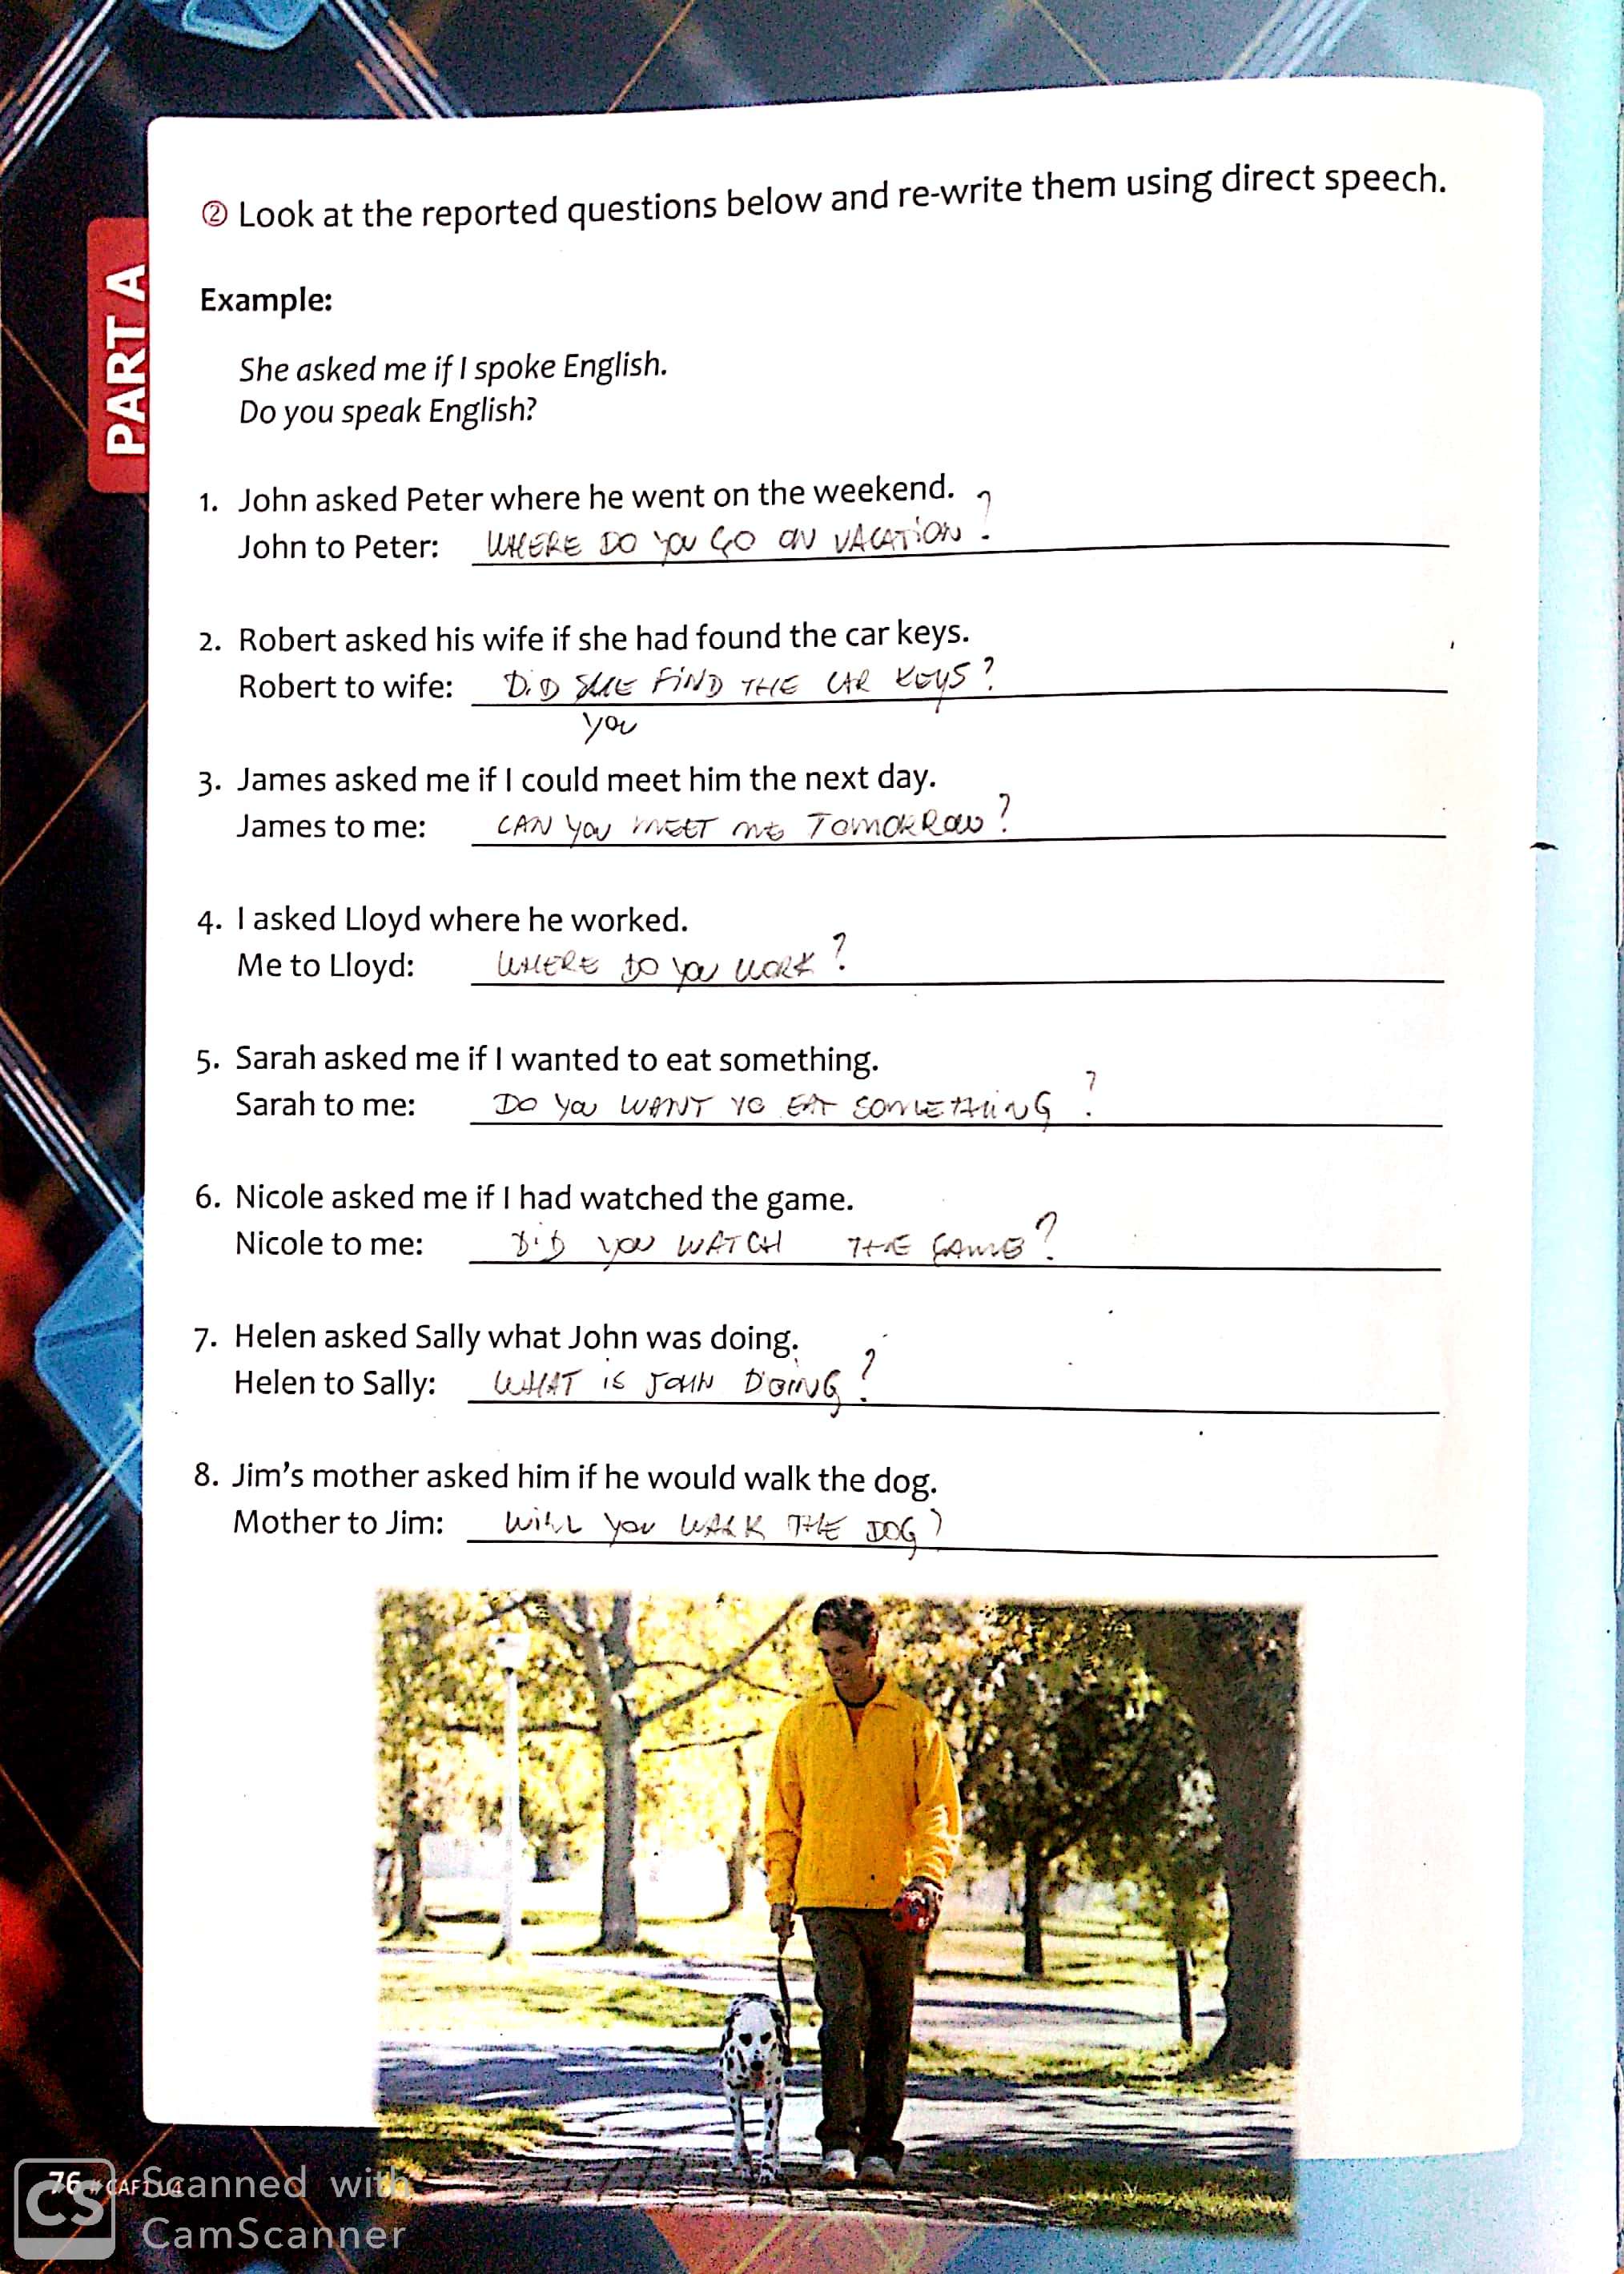 ② Look at the reported questions below and re-write them using direct speech.
PART A
Example:
She asked me if I spoke English.
Do you speak English?
1. John asked Peter where he went on the weekend.
John to Peter: WHERE DO YOU GO ON VACATION?
2. Robert asked his wife if she had found the car keys.
Robert to wife: DID SHE FIND THE CAR KEYS?
you
3. James asked me if I could meet him the next day.
James to me: CAN YOU MEET ME TOMORROW?
4. I asked Lloyd where he worked.
Me to Lloyd: WHERE DO YOU WORK?
5. Sarah asked me if I wanted to eat something.
Sarah to me: DO YOU WANT TO EAT SOMETHING?
6. Nicole asked me if I had watched the game.
Nicole to me: DID YOU WATCH THE GAME?
7. Helen asked Sally what John was doing.
Helen to Sally: WHAT IS JOHN DOING?
8. Jim's mother asked him if he would walk the dog.
Mother to Jim: WILL YOU WALK THE DOG?
76
CS Scanned with
CamScanner